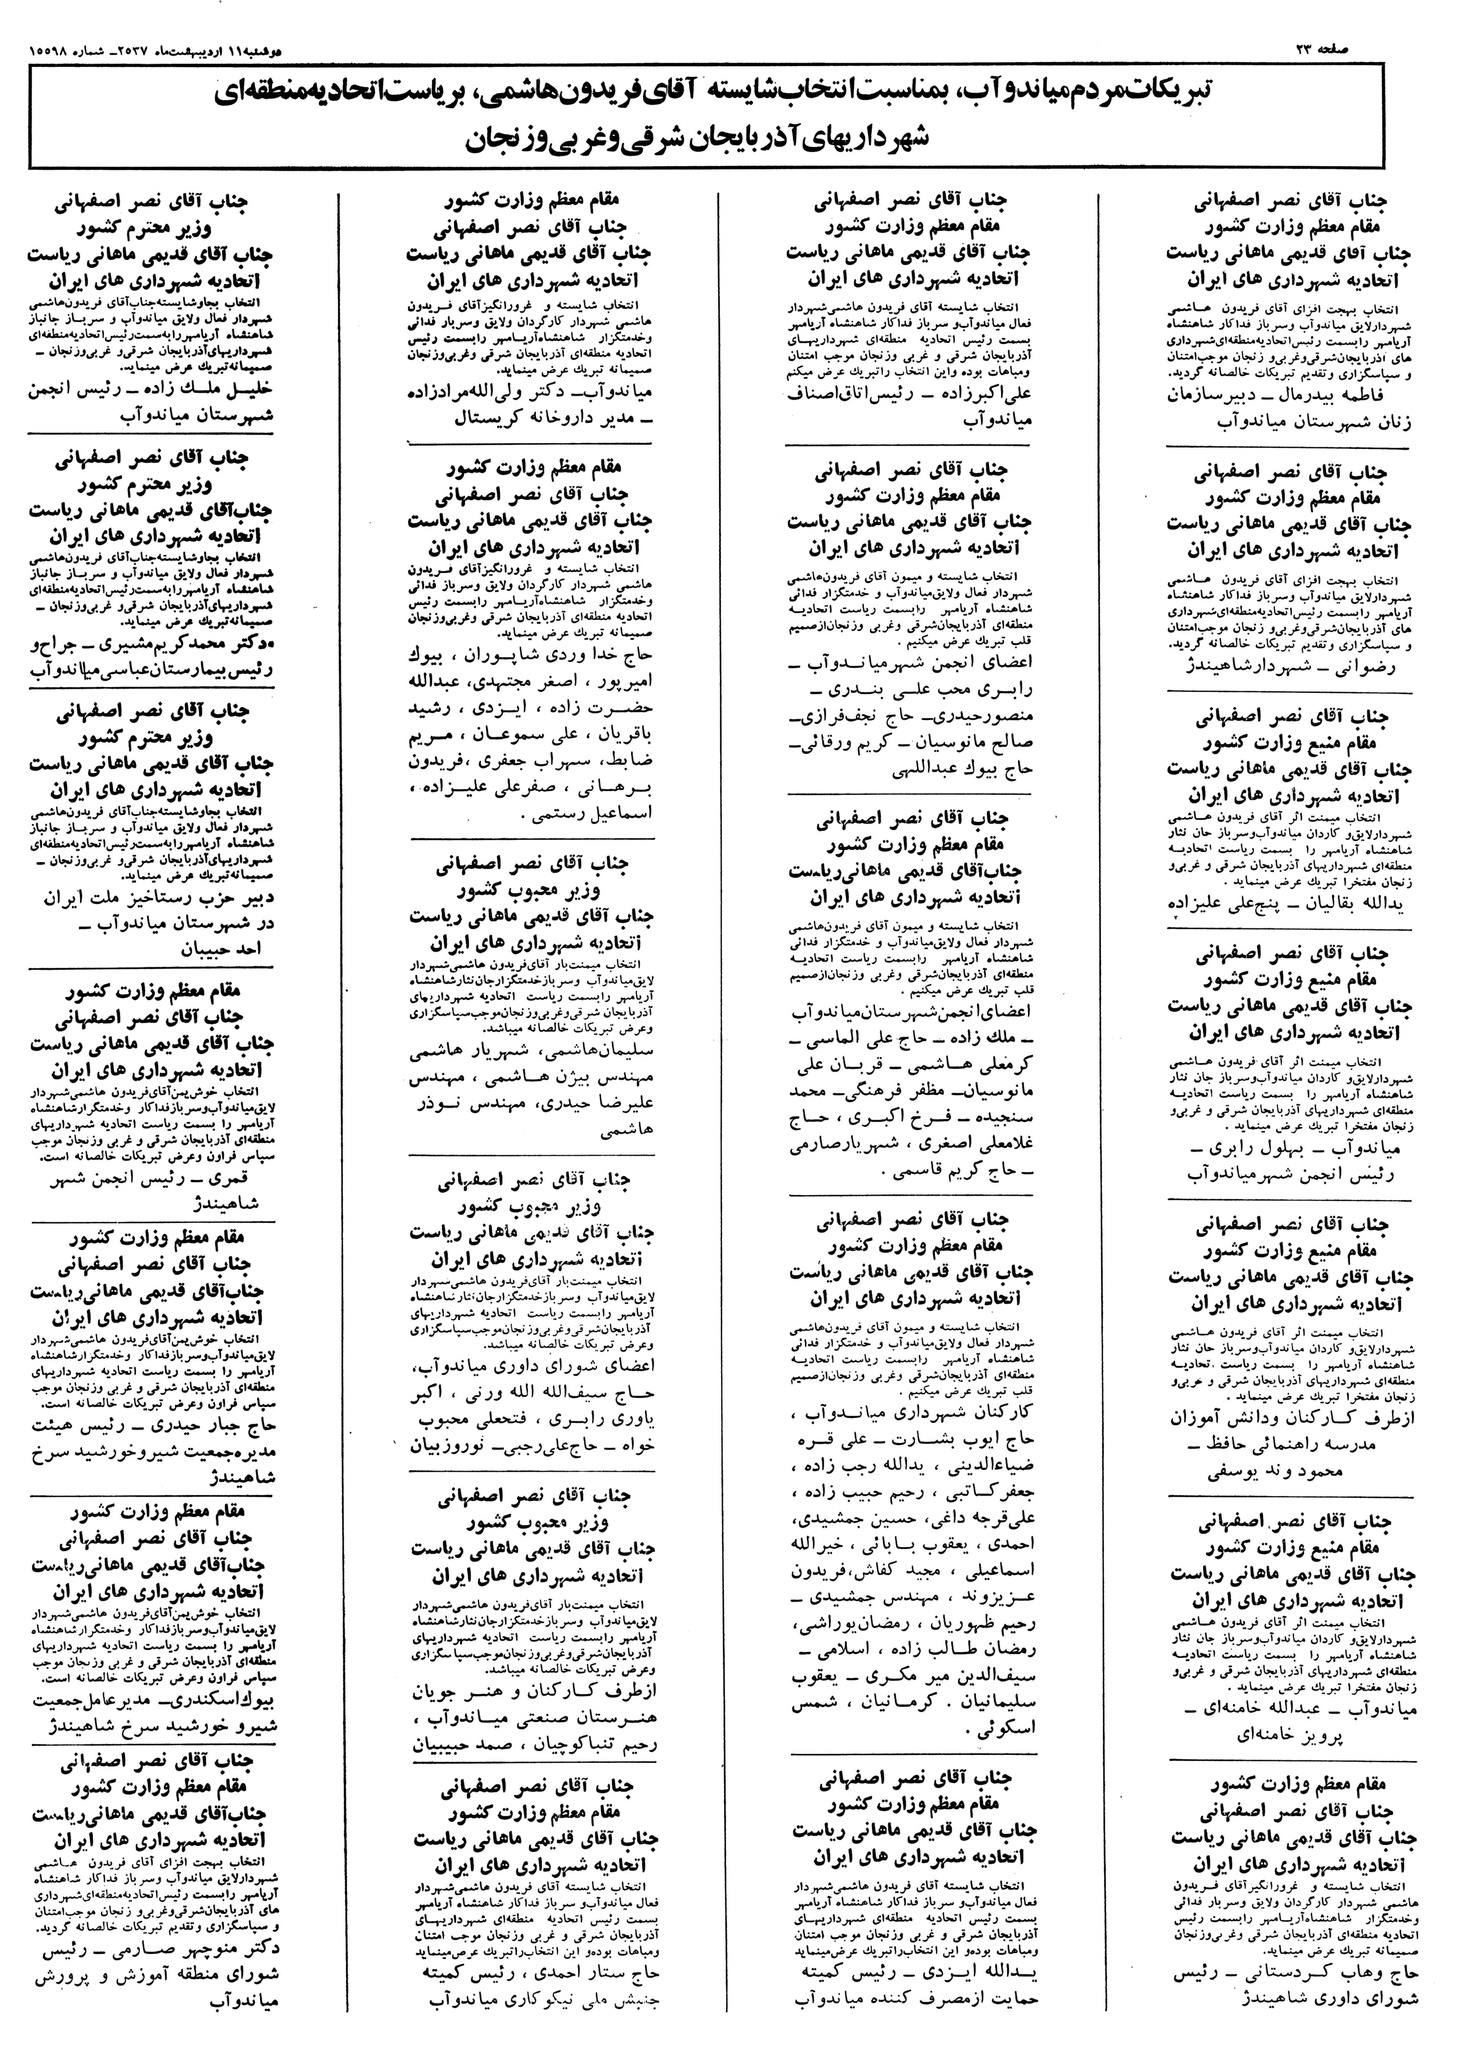 صفحه ۲۳
دوشنبه ۱۱ اردیبهشت‌ماه ۲۵۳۷ــ شماره ۱۵۵۹۸
تبریکات مردم میاندوآب، بمناسبت انتخاب شایسته آقای فریدون هاشمی، بریاست اتحادیه منطقه‌ای
شهرداریهای آذربایجان شرقی و غربی و زنجان
جناب آقای نصر اصفهانی
مقام معظم وزارت کشور
جناب آقای قدیمی ماهانی ریاست
اتحادیه شهرداری های ایران
انتخاب بهجت افزای آقای فریدون هاشمی
شهردار لایق میاندوآب و سرباز فداکار شاهنشاه
آریامهر را بسمت رئیس اتحادیه منطقه‌ای شهرداری
های آذربایجان شرقی و غربی و زنجان موجب امتنان
و سپاسگزاری و تقدیم تبریکات خالصانه گردید.
فاطمه بیدرمال ــ دبیر سازمان
زنان شهرستان میاندوآب
جناب آقای نصر اصفهانی
مقام معظم وزارت کشور
جناب آقای قدیمی ماهانی ریاست
اتحادیه شهرداری های ایران
انتخاب بهجت افزای آقای فریدون هاشمی
شهردار لایق میاندوآب و سرباز فداکار شاهنشاه
آریامهر را بسمت رئیس اتحادیه منطقه‌ای شهرداری
های آذربایجان شرقی و غربی و زنجان موجب امتنان
و سپاسگزاری و تقدیم تبریکات خالصانه گردید.
رضوانی ــ شهردار شاهیندژ
جناب آقای نصر اصفهانی
مقام منیع وزارت کشور
جناب آقای قدیمی ماهانی ریاست
اتحادیه شهرداری های ایران
انتخاب میمنت اثر آقای فریدون هاشمی
شهردار لایق و کاردان میاندوآب و سرباز جان نثار
شاهنشاه آریامهر را بسمت ریاست اتحادیه
منطقه‌ای شهرداریهای آذربایجان شرقی و غربی و
زنجان مفتخرا تبریک عرض مینماید .
یدالله بقالیان ــ پنجعلی علیزاده
جناب آقای نصر اصفهانی
مقام منیع وزارت کشور
جناب آقای قدیمی ماهانی ریاست
اتحادیه شهرداری های ایران
انتخاب میمنت اثر آقای فریدون هاشمی
شهردار لایق و کاردان میاندوآب و سرباز جان نثار
شاهنشاه آریامهر را بسمت ریاست اتحادیه
منطقه‌ای شهرداریهای آذربایجان شرقی و غربی و
زنجان مفتخرا تبریک عرض مینماید .
میاندوآب ــ بهلول رابری ــ
رئیس انجمن شهر میاندوآب
جناب آقای نصر اصفهانی
مقام منیع وزارت کشور
جناب آقای قدیمی ماهانی ریاست
اتحادیه شهرداری های ایران
انتخاب میمنت اثر آقای فریدون هاشمی
شهردار لایق و کاردان میاندوآب و سرباز جان نثار
شاهنشاه آریامهر را بسمت ریاست اتحادیه
منطقه‌ای شهرداریهای آذربایجان شرقی و غربی و
زنجان مفتخرا تبریک عرض مینماید .
از طرف کارکنان و دانش آموزان
مدرسه راهنمائی حافظ ــ
محمود وند یوسفی
جناب آقای نصر اصفهانی
مقام منیع وزارت کشور
جناب آقای قدیمی ماهانی ریاست
اتحادیه شهرداری های ایران
انتخاب میمنت اثر آقای فریدون هاشمی
شهردار لایق و کاردان میاندوآب و سرباز جان نثار
شاهنشاه آریامهر را بسمت ریاست اتحادیه
منطقه‌ای شهرداریهای آذربایجان شرقی و غربی و
زنجان مفتخرا تبریک عرض مینماید .
میاندوآب ــ عبدالله خامنه‌ای ــ
پرویز خامنه‌ای
مقام معظم وزارت کشور
جناب آقای نصر اصفهانی
جناب آقای قدیمی ماهانی ریاست
اتحادیه شهرداری های ایران
انتخاب شایسته و غرورانگیز آقای فریدون
هاشمی شهردار کارگردان و لایق و سرباز فدائی
و خدمتگزار شاهنشاه آریامهر را بسمت رئیس
اتحادیه منطقه‌ای آذربایجان شرقی و غربی و زنجان
صمیمانه تبریک عرض مینماید.
حاج وهاب کردستانی ــ رئیس
شورای داوری شاهیندژ
جناب آقای نصر اصفهانی
مقام معظم وزارت کشور
جناب آقای قدیمی ماهانی ریاست
اتحادیه شهرداری های ایران
انتخاب شایسته آقای فریدون هاشمی شهردار
فعال میاندوآب و سرباز فداکار شاهنشاه آریامهر
بسمت رئیس اتحادیه منطقه‌ای شهرداریهای
آذربایجان شرقی و غربی و زنجان موجب امتنان
و مباهات بوده و این انتخاب را تبریک عرض میکنم
علی اکبرزاده ــ رئیس اتاق اصناف
میاندوآب
جناب آقای نصر اصفهانی
مقام معظم وزارت کشور
جناب آقای قدیمی ماهانی ریاست
اتحادیه شهرداری های ایران
انتخاب شایسته و میمون آقای فریدون هاشمی
شهردار فعال و لایق میاندوآب و خدمتگزار فدائی
شاهنشاه آریامهر را بسمت ریاست اتحادیه
منطقه‌ای آذربایجان شرقی و غربی و زنجان از صمیم
قلب تبریک عرض میکنیم .
اعضای انجمن شهر میاندوآب ــ
رابری محب علی بندری ــ
منصور حیدری ــ حاج نجف فرازی ــ
صالح مانوسیان ــ کریم ورقائی ــ
حاج بیوک عبداللهی
جناب آقای نصر اصفهانی
مقام معظم وزارت کشور
جناب آقای قدیمی ماهانی ریاست
اتحادیه شهرداری های ایران
انتخاب شایسته و میمون آقای فریدون هاشمی
شهردار فعال و لایق میاندوآب و خدمتگزار فدائی
شاهنشاه آریامهر را بسمت ریاست اتحادیه
منطقه‌ای آذربایجان شرقی و غربی و زنجان از صمیم
قلب تبریک عرض میکنیم .
اعضای انجمن شهرستان میاندوآب
ــ ملک زاده ــ حاج علی الماسی ــ
کرمعلی هاشمی ــ قربان علی
مانوسیان ــ مظفر فرهنگی ــ محمد
سنجیده ــ فرخ اکبری ، حاج
غلامعلی اصغری ، شهریار صارمی
ــ حاج کریم قاسمی .
جناب آقای نصر اصفهانی
مقام معظم وزارت کشور
جناب آقای قدیمی ماهانی ریاست
اتحادیه شهرداری های ایران
انتخاب شایسته و میمون آقای فریدون هاشمی
شهردار فعال و لایق میاندوآب و خدمتگزار فدائی
شاهنشاه آریامهر را بسمت ریاست اتحادیه
منطقه‌ای آذربایجان شرقی و غربی و زنجان از صمیم
قلب تبریک عرض میکنیم .
کارکنان شهرداری میاندوآب ،
حاج ایوب بشارت ــ علی قره
ضیاءالدینی ، یدالله رجب زاده ،
جعفر کاتبی ، رحیم حبیب زاده ،
علی قرجه داغی، حسین جمشیدی،
احمدی ، یعقوب بابائی ، خیرالله
اسماعیلی ، مجید کفاش، فریدون
عزیزوند ، مهندس جمشیدی ــ
رحیم ظهوریان ، رمضان پوراشی،
رمضان طالب زاده ، اسلامی ــ
سیف‌الدین میر مکری ــ یعقوب
سلیمانیان . کرمانیان ، شمس
اسکوئی .
جناب آقای نصر اصفهانی
مقام معظم وزارت کشور
جناب آقای قدیمی ماهانی ریاست
اتحادیه شهرداری های ایران
انتخاب شایسته آقای فریدون هاشمی شهردار
فعال میاندوآب و سرباز فداکار شاهنشاه آریامهر
بسمت رئیس اتحادیه منطقه‌ای شهرداریهای
آذربایجان شرقی و غربی و زنجان موجب امتنان
و مباهات بوده و این انتخاب را تبریک عرض مینماید
یدالله ایزدی ــ رئیس کمیته
حمایت از مصرف کننده میاندوآب
مقام معظم وزارت کشور
جناب آقای نصر اصفهانی
جناب آقای قدیمی ماهانی ریاست
اتحادیه شهرداری های ایران
انتخاب شایسته و غرورانگیز آقای فریدون
هاشمی شهردار کارگردان و لایق و سرباز فدائی
و خدمتگزار شاهنشاه آریامهر را بسمت رئیس
اتحادیه منطقه‌ای آذربایجان شرقی و غربی و زنجان
صمیمانه تبریک عرض مینماید.
میاندوآب ــ دکتر ولی‌الله مرادزاده
ــ مدیر داروخانه کریستال
مقام معظم وزارت کشور
جناب آقای نصر اصفهانی
جناب آقای قدیمی ماهانی ریاست
اتحادیه شهرداری های ایران
انتخاب شایسته و غرورانگیز آقای فریدون
هاشمی شهردار کارگردان و لایق و سرباز فدائی
و خدمتگزار شاهنشاه آریامهر را بسمت رئیس
اتحادیه منطقه‌ای آذربایجان شرقی و غربی و زنجان
صمیمانه تبریک عرض مینماید.
حاج خدا وردی شاپوران ، بیوک
امیرپور ، اصغر مجتهدی، عبدالله
حضرت زاده ، ایزدی ، رشید
باقریان ، علی سموعان ، مریم
ضابط، سهراب جعفری ،فریدون
برهانی ، صفرعلی علیزاده ،
اسماعیل رستمی .
جناب آقای نصر اصفهانی
وزیر محبوب کشور
جناب آقای قدیمی ماهانی ریاست
اتحادیه شهرداری های ایران
انتخاب میمنت‌بار آقای فریدون هاشمی شهردار
لایق میاندوآب و سرباز خدمتگزار جان نثار شاهنشاه
آریامهر را بسمت ریاست اتحادیه شهرداریهای
آذربایجان شرقی و غربی و زنجان موجب سپاسگزاری
و عرض تبریکات خالصانه میباشد.
سلیمان هاشمی، شهریار هاشمی
مهندس بیژن هاشمی ، مهندس
علیرضا حیدری، مهندس نوذر
هاشمی
جناب آقای نصر اصفهانی
وزیر محبوب کشور
جناب آقای قدیمی ماهانی ریاست
اتحادیه شهرداری های ایران
انتخاب میمنت‌بار آقای فریدون هاشمی شهردار
لایق میاندوآب و سرباز خدمتگزار جان نثار شاهنشاه
آریامهر را بسمت ریاست اتحادیه شهرداریهای
آذربایجان شرقی و غربی و زنجان موجب سپاسگزاری
و عرض تبریکات خالصانه میباشد.
اعضای شورای داوری میاندوآب،
حاج سیف‌الله الله ورنی ، اکبر
یاوری رابری ، فتحعلی محبوب
خواه ــ حاج علی رجبی ــ نوروز بیان
جناب آقای نصر اصفهانی
وزیر محبوب کشور
جناب آقای قدیمی ماهانی ریاست
اتحادیه شهرداری های ایران
انتخاب میمنت‌بار آقای فریدون هاشمی شهردار
لایق میاندوآب و سرباز خدمتگزار جان نثار شاهنشاه
آریامهر را بسمت ریاست اتحادیه شهرداریهای
آذربایجان شرقی و غربی و زنجان موجب سپاسگزاری
و عرض تبریکات خالصانه میباشد.
از طرف کارکنان و هنر جویان
هنرستان صنعتی میاندوآب ،
رحیم تنباکوچیان ، صمد حبیبیان
جناب آقای نصر اصفهانی
مقام معظم وزارت کشور
جناب آقای قدیمی ماهانی ریاست
اتحادیه شهرداری های ایران
انتخاب شایسته آقای فریدون هاشمی شهردار
فعال میاندوآب و سرباز فداکار شاهنشاه آریامهر
بسمت رئیس اتحادیه منطقه‌ای شهرداریهای
آذربایجان شرقی و غربی و زنجان موجب امتنان
و مباهات بوده و این انتخاب را تبریک عرض مینماید
حاج ستار احمدی ، رئیس کمیته
جنبش ملی نیکوکاری میاندوآب
جناب آقای نصر اصفهانی
وزیر محترم کشور
جناب آقای قدیمی ماهانی ریاست
اتحادیه شهرداری های ایران
انتخاب بجا و شایسته جناب آقای فریدون هاشمی
شهردار فعال و لایق میاندوآب و سرباز جانباز
شاهنشاه آریامهر را به سمت رئیس اتحادیه منطقه‌ای
شهرداریهای آذربایجان شرقی و غربی و زنجان ــ
صمیمانه تبریک عرض مینماید.
خلیل ملک زاده ــ رئیس انجمن
شهرستان میاندوآب
جناب آقای نصر اصفهانی
وزیر محترم کشور
جناب آقای قدیمی ماهانی ریاست
اتحادیه شهرداری های ایران
انتخاب بجا و شایسته جناب آقای فریدون هاشمی
شهردار فعال و لایق میاندوآب و سرباز جانباز
شاهنشاه آریامهر را به سمت رئیس اتحادیه منطقه‌ای
شهرداریهای آذربایجان شرقی و غربی و زنجان ــ
صمیمانه تبریک عرض مینماید.
دکتر محمد کریم مشیری ــ جراح و
رئیس بیمارستان عباسی میاندوآب
جناب آقای نصر اصفهانی
وزیر محترم کشور
جناب آقای قدیمی ماهانی ریاست
اتحادیه شهرداری های ایران
انتخاب بجا و شایسته جناب آقای فریدون هاشمی
شهردار فعال و لایق میاندوآب و سرباز جانباز
شاهنشاه آریامهر را به سمت رئیس اتحادیه منطقه‌ای
شهرداریهای آذربایجان شرقی و غربی و زنجان ــ
صمیمانه تبریک عرض مینماید.
دبیر حزب رستاخیز ملت ایران
در شهرستان میاندوآب ــ
احد حبیبان
مقام معظم وزارت کشور
جناب آقای نصر اصفهانی
جناب آقای قدیمی ماهانی ریاست
اتحادیه شهرداری های ایران
انتخاب خوش‌یمن آقای فریدون هاشمی شهردار
لایق میاندوآب و سرباز فداکار و خدمتگزار شاهنشاه
آریامهر را بسمت ریاست اتحادیه شهرداریهای
منطقه‌ای آذربایجان شرقی و غربی و زنجان موجب
سپاس فراون و عرض تبریکات خالصانه است.
قمری ــ رئیس انجمن شهر
شاهیندژ
مقام معظم وزارت کشور
جناب آقای نصر اصفهانی
جناب آقای قدیمی ماهانی ریاست
اتحادیه شهرداری های ایران
انتخاب خوش‌یمن آقای فریدون هاشمی شهردار
لایق میاندوآب و سرباز فداکار و خدمتگزار شاهنشاه
آریامهر را بسمت ریاست اتحادیه شهرداریهای
منطقه‌ای آذربایجان شرقی و غربی و زنجان موجب
سپاس فراون و عرض تبریکات خالصانه است.
حاج جبار حیدری ــ رئیس هیئت
مدیره جمعیت شیر و خورشید سرخ
شاهیندژ
مقام معظم وزارت کشور
جناب آقای نصر اصفهانی
جناب آقای قدیمی ماهانی ریاست
اتحادیه شهرداری های ایران
انتخاب خوش‌یمن آقای فریدون هاشمی شهردار
لایق میاندوآب و سرباز فداکار و خدمتگزار شاهنشاه
آریامهر را بسمت ریاست اتحادیه شهرداریهای
منطقه‌ای آذربایجان شرقی و غربی و زنجان موجب
سپاس فراون و عرض تبریکات خالصانه است.
بیوک اسکندری ــ مدیر عامل جمعیت
شیر و خورشید سرخ شاهیندژ
جناب آقای نصر اصفهانی
مقام معظم وزارت کشور
جناب آقای قدیمی ماهانی ریاست
اتحادیه شهرداری های ایران
انتخاب بهجت افزای آقای فریدون هاشمی
شهردار لایق میاندوآب و سرباز فداکار شاهنشاه
آریامهر را بسمت رئیس اتحادیه منطقه‌ای شهرداری
های آذربایجان شرقی و غربی و زنجان موجب امتنان
و سپاسگزاری و تقدیم تبریکات خالصانه گردید.
دکتر منوچهر صارمی ــ رئیس
شورای منطقه آموزش و پرورش
میاندوآب